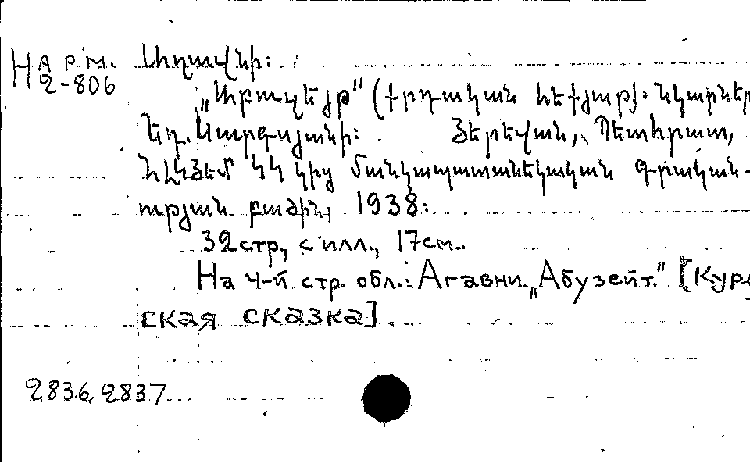 На рм. Աղավնի:
2-806
„Աբուզեյթ" (քրդական հեքյաթ): Նկարներ
Յեղ. Սարգսյանի: Յերեվան, Պետհրատ,
ՀԼԿՅԵՄ ԿԿ կից մանկապատանեկական գրական-
ության բաժին, 1938:
32стр, с илл., 17см.
На 4-й стр. обл.: Агавни. „Абузейт." [Курд
ская сказка].
2836, 2837